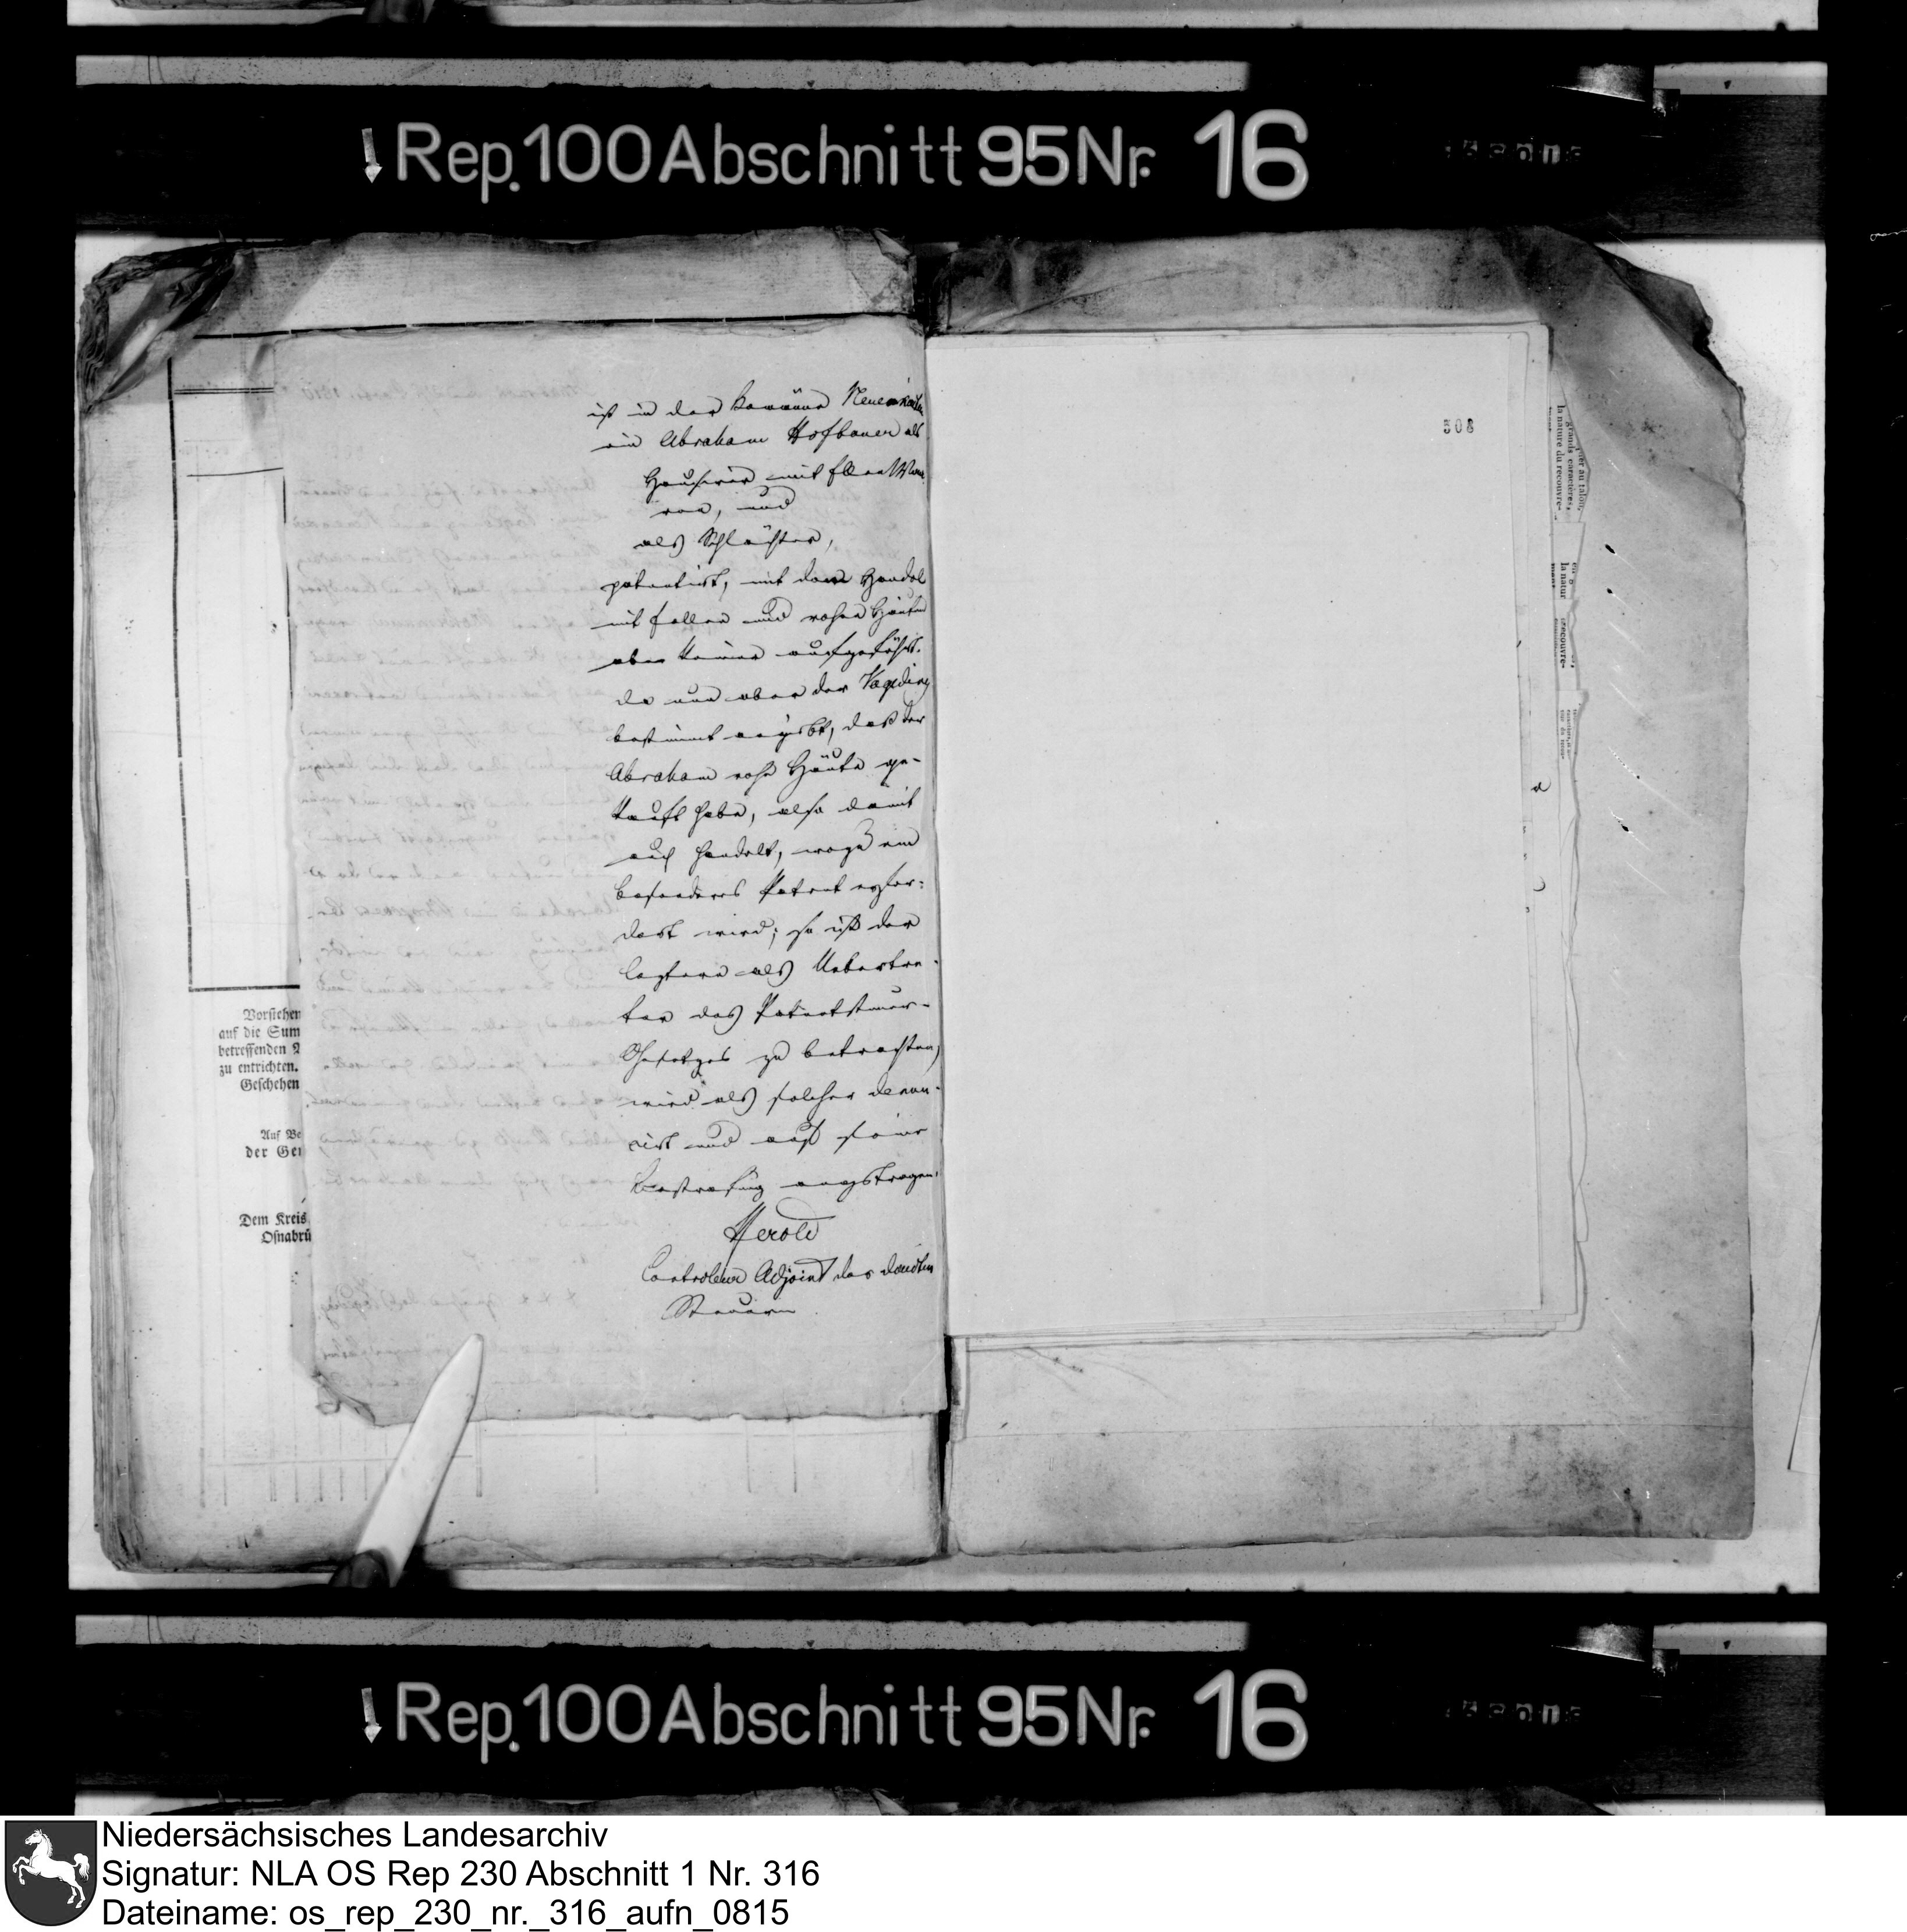 Rep. 100 Abschnitt 95 Nr. 16
ist in der Commüne Neuenkirchen
ein Abraham Hofbauer als
Hausirer mit Ellen Waa
ren, und
als Schlächter,
patentisirt, mit dem Handel
mit Fellen und rohen Häuten
aber keiner aufgeführt.
da nun aber der Vogeding
bestimmt angibt, daß der
Abraham rohe Häute ge-
kauft habe, also damit
auch handelt, wozu ein
besonderes Patent erfor-
dert wird; so ist der
letztere als Uebertre-
ter des Patentsteuer-
Gesetzes zu betrachten,
wird als solcher denun-
cirt und auf seine
Bestrafung angetragen.
Herold
Controleur Adjoint der direkten
Steuern
508
Vorstehen
auf die Sum
betreffenden
zu entrichten.
Geschehen
Auf Be
der Ge
Dem Kreis
Osnabrü
er au talon,
grands caractères,
la nature du recouvre-
la natur
recouvre-
Rep. 100 Abschnitt 95 Nr. 16
Niedersächsisches Landesarchiv
Signatur: NLA OS Rep 230 Abschnitt 1 Nr. 316
Dateiname: os_rep_230_nr._316_aufn_0815